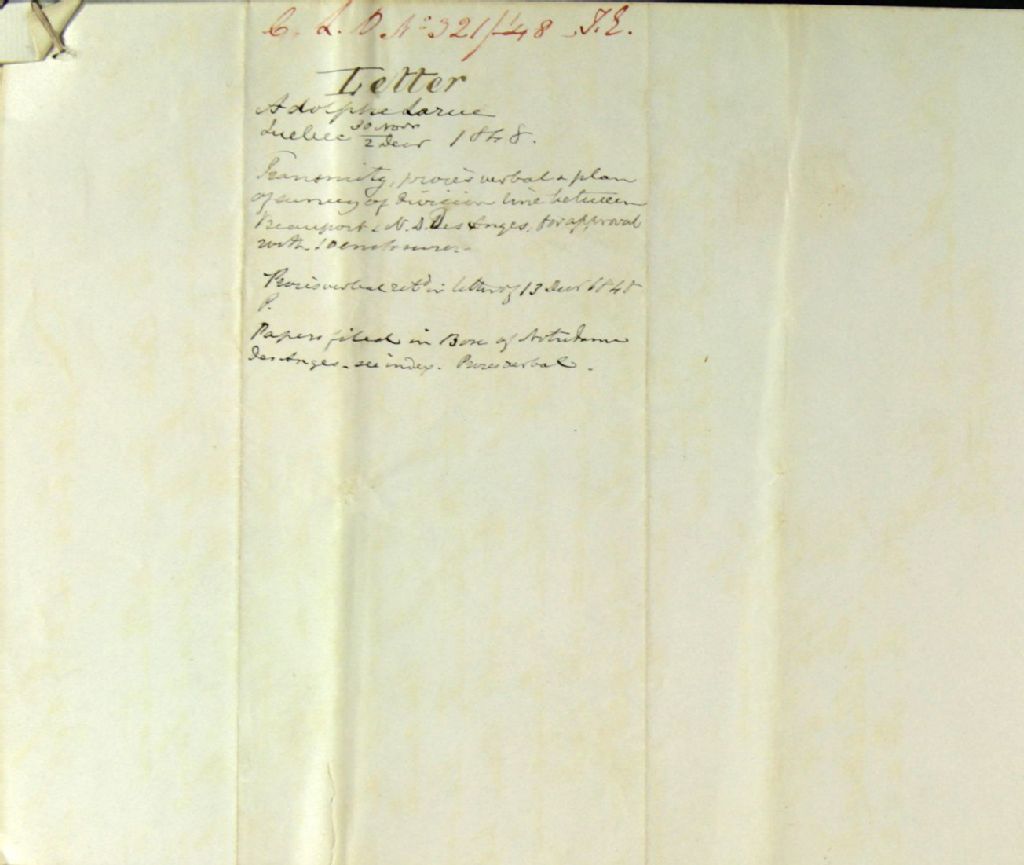 C. L. D. No 321/48 J. E.
Letter
Adolphe Larue
Quebec 30 Novr 1848.
2 Decr
Transmitg. procès verbal & plan
of survey of division line between
Beauport & N. D. Des Anges, for approval
with 10 enclosures
Procès verbal retd in letter of 13 Decr 1848
P.
Papers filed in Box of Notredame
Des Anges - see index. Procès verbal.